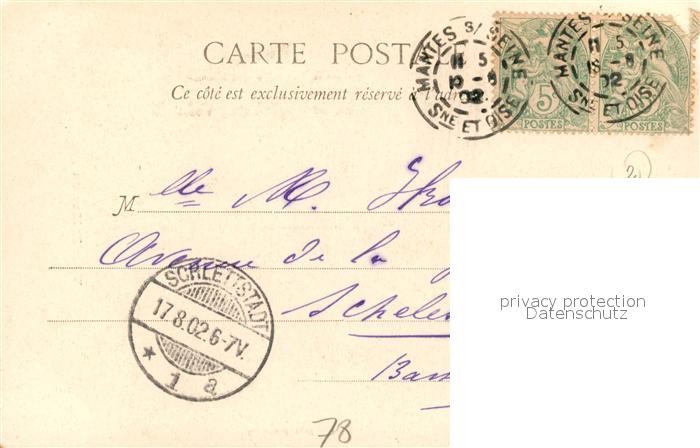 CARTE POSTALE
Ce côté est exclusivement réservé à l'adresse
MANTES S/ SEINE
11 5
8
02
SNE ET OISE
MANTES S/ SEINE
11 5
8
02
SNE ET OISE
5
POSTES
POSTES
Mlle M.
Avenue de la
SCHLETTSTADT
17.8.02.6-7V.
* 1 a
privacy protection
Datenschutz
78